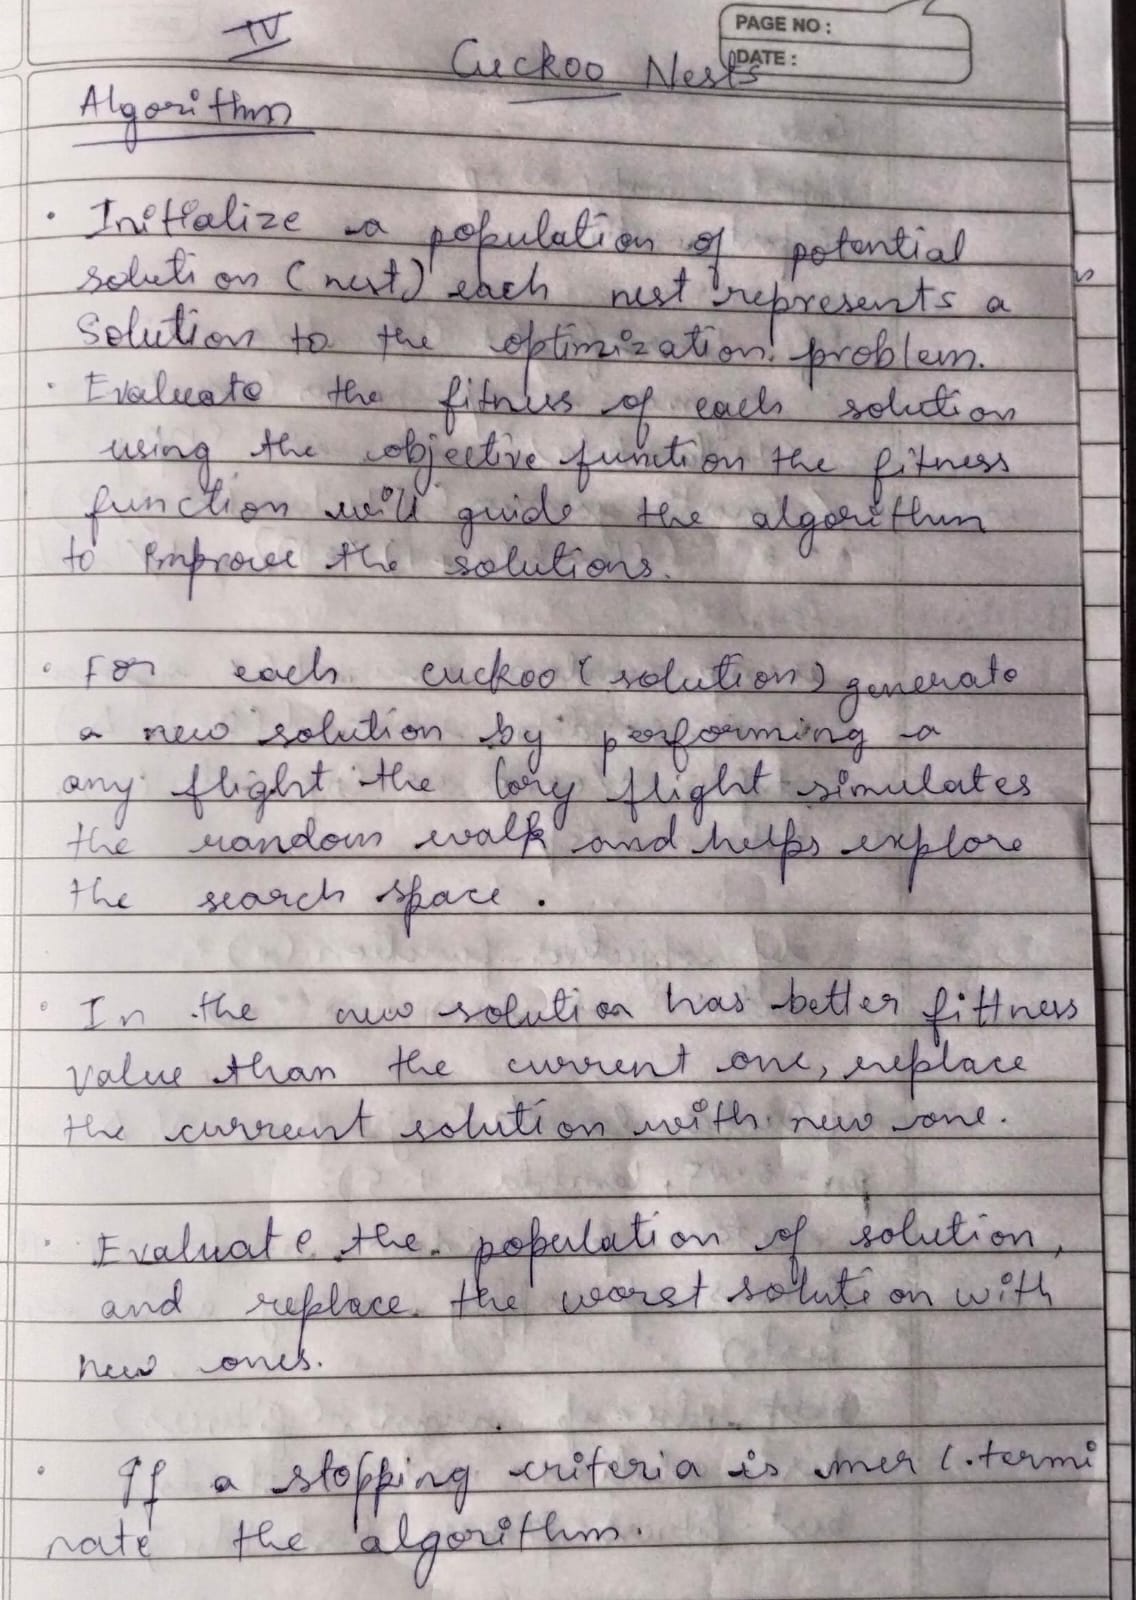 IV
PAGE NO :
DATE :
Cuckoo Nests
Algorithm
• Initialize a population of potential
solution (nest) each nest represents a
Solution to the optimization problem.
• Evaluate the fitness of each solution
using the objective function the fitness
function will guide the algorithm
to improve the solutions.
• For each cuckoo (solution) generate
a new solution by performing a
any flight the lavy flight simulates
the random walk and helps explore
the search space.
• In the new solution has better fittness
value than the current one, replace
the current solution with new one.
• Evaluate the population of solution,
and replace the worst solution with
new ones.
• If a stopping criteria is mer (.termi
nate the algorithm.